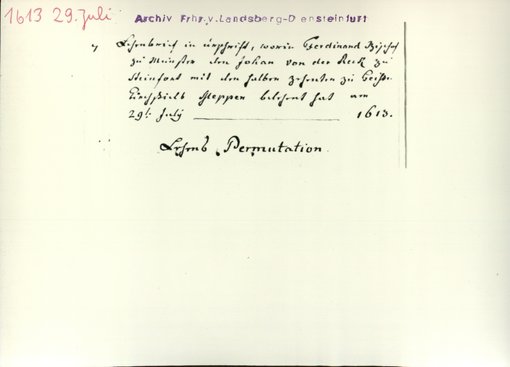 1613 29. Juli
Archiv Frhr.v.Landsberg-D ensteinfurt
Lehnbrief in urschrift, worin Ferdinand Bischof
zu Münster den Johan von der Reck zu
Steinfort mit den halben zehenten zu
Kirchspiels belehnt hat am
29t. July 1613.
Lehns Permutation.